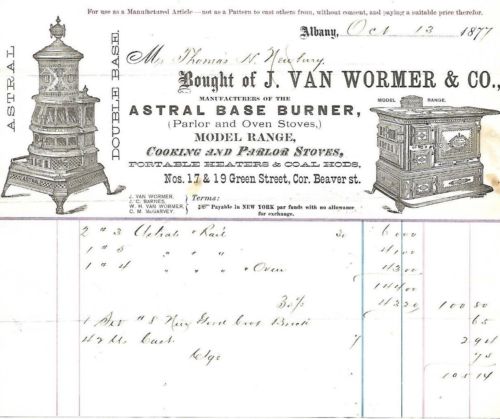 For use as a Manufactured Article—not as a Pattern to cast others from, without consent, and paying a suitable price therefor.
Albany, Oct 13 1877
Mr Thomas N. Newbury.
Bought of J. VAN WORMER & CO.,
ASTRAL
DOUBLE BASE
MANUFACTURERS OF THE
ASTRAL BASE BURNER,
(Parlor and Oven Stoves,)
MODEL RANGE,
COOKING AND PARLOR STOVES,
PORTABLE HEATERS & COAL HODS,
Nos. 17 & 19 Green Street, Cor. Beaver st.
MODEL RANGE.
J. VAN WORMER,
J. C. BARNES,
W. H. VAN WORMER,
C. M. McGARVEY.
Terms:
Payable in NEW YORK par funds with no allowance
for exchange.
2 # 3 Astrals & Rail 30 60 00
1 " 5 " " " 41 00
1 " 4 " " " & Oven 43 00
144 00
30% 43 20 100 80
1 Set # 8 Brick 65
42 lbs Cast 7 2 94
Ctge 75
105 14